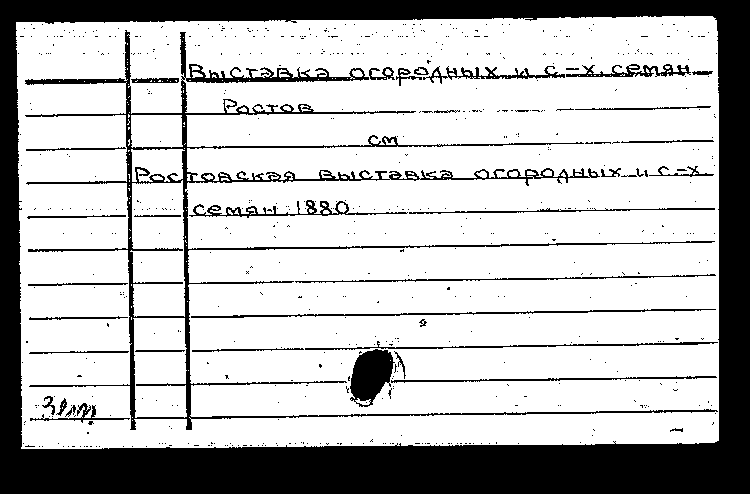 Выставка огородных и с-х. семян
Ростов
см
Ростовская выставка огородных и с-х.
семян. 1880